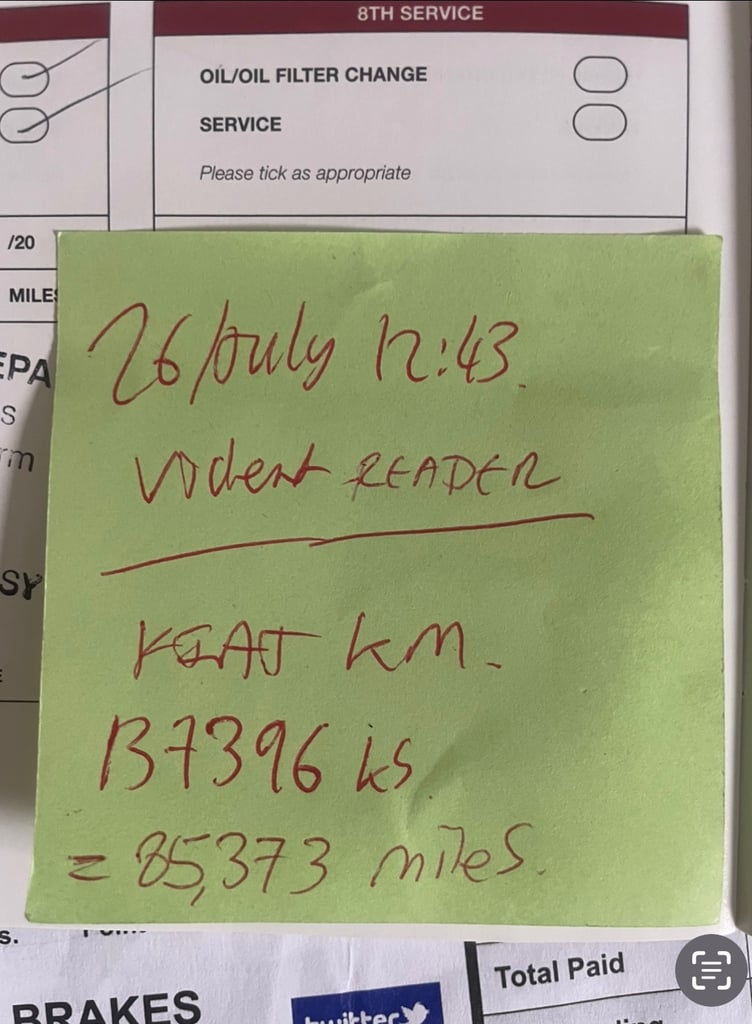 8TH SERVICE
OIL/OIL FILTER CHANGE
SERVICE
Please tick as appropriate
/20
MILES
EPA
S
rm
SY
26/July 12:43.
READER
km.
137396 ks
= 85,373 miles.
s.
BRAKES
twitter
Total Paid